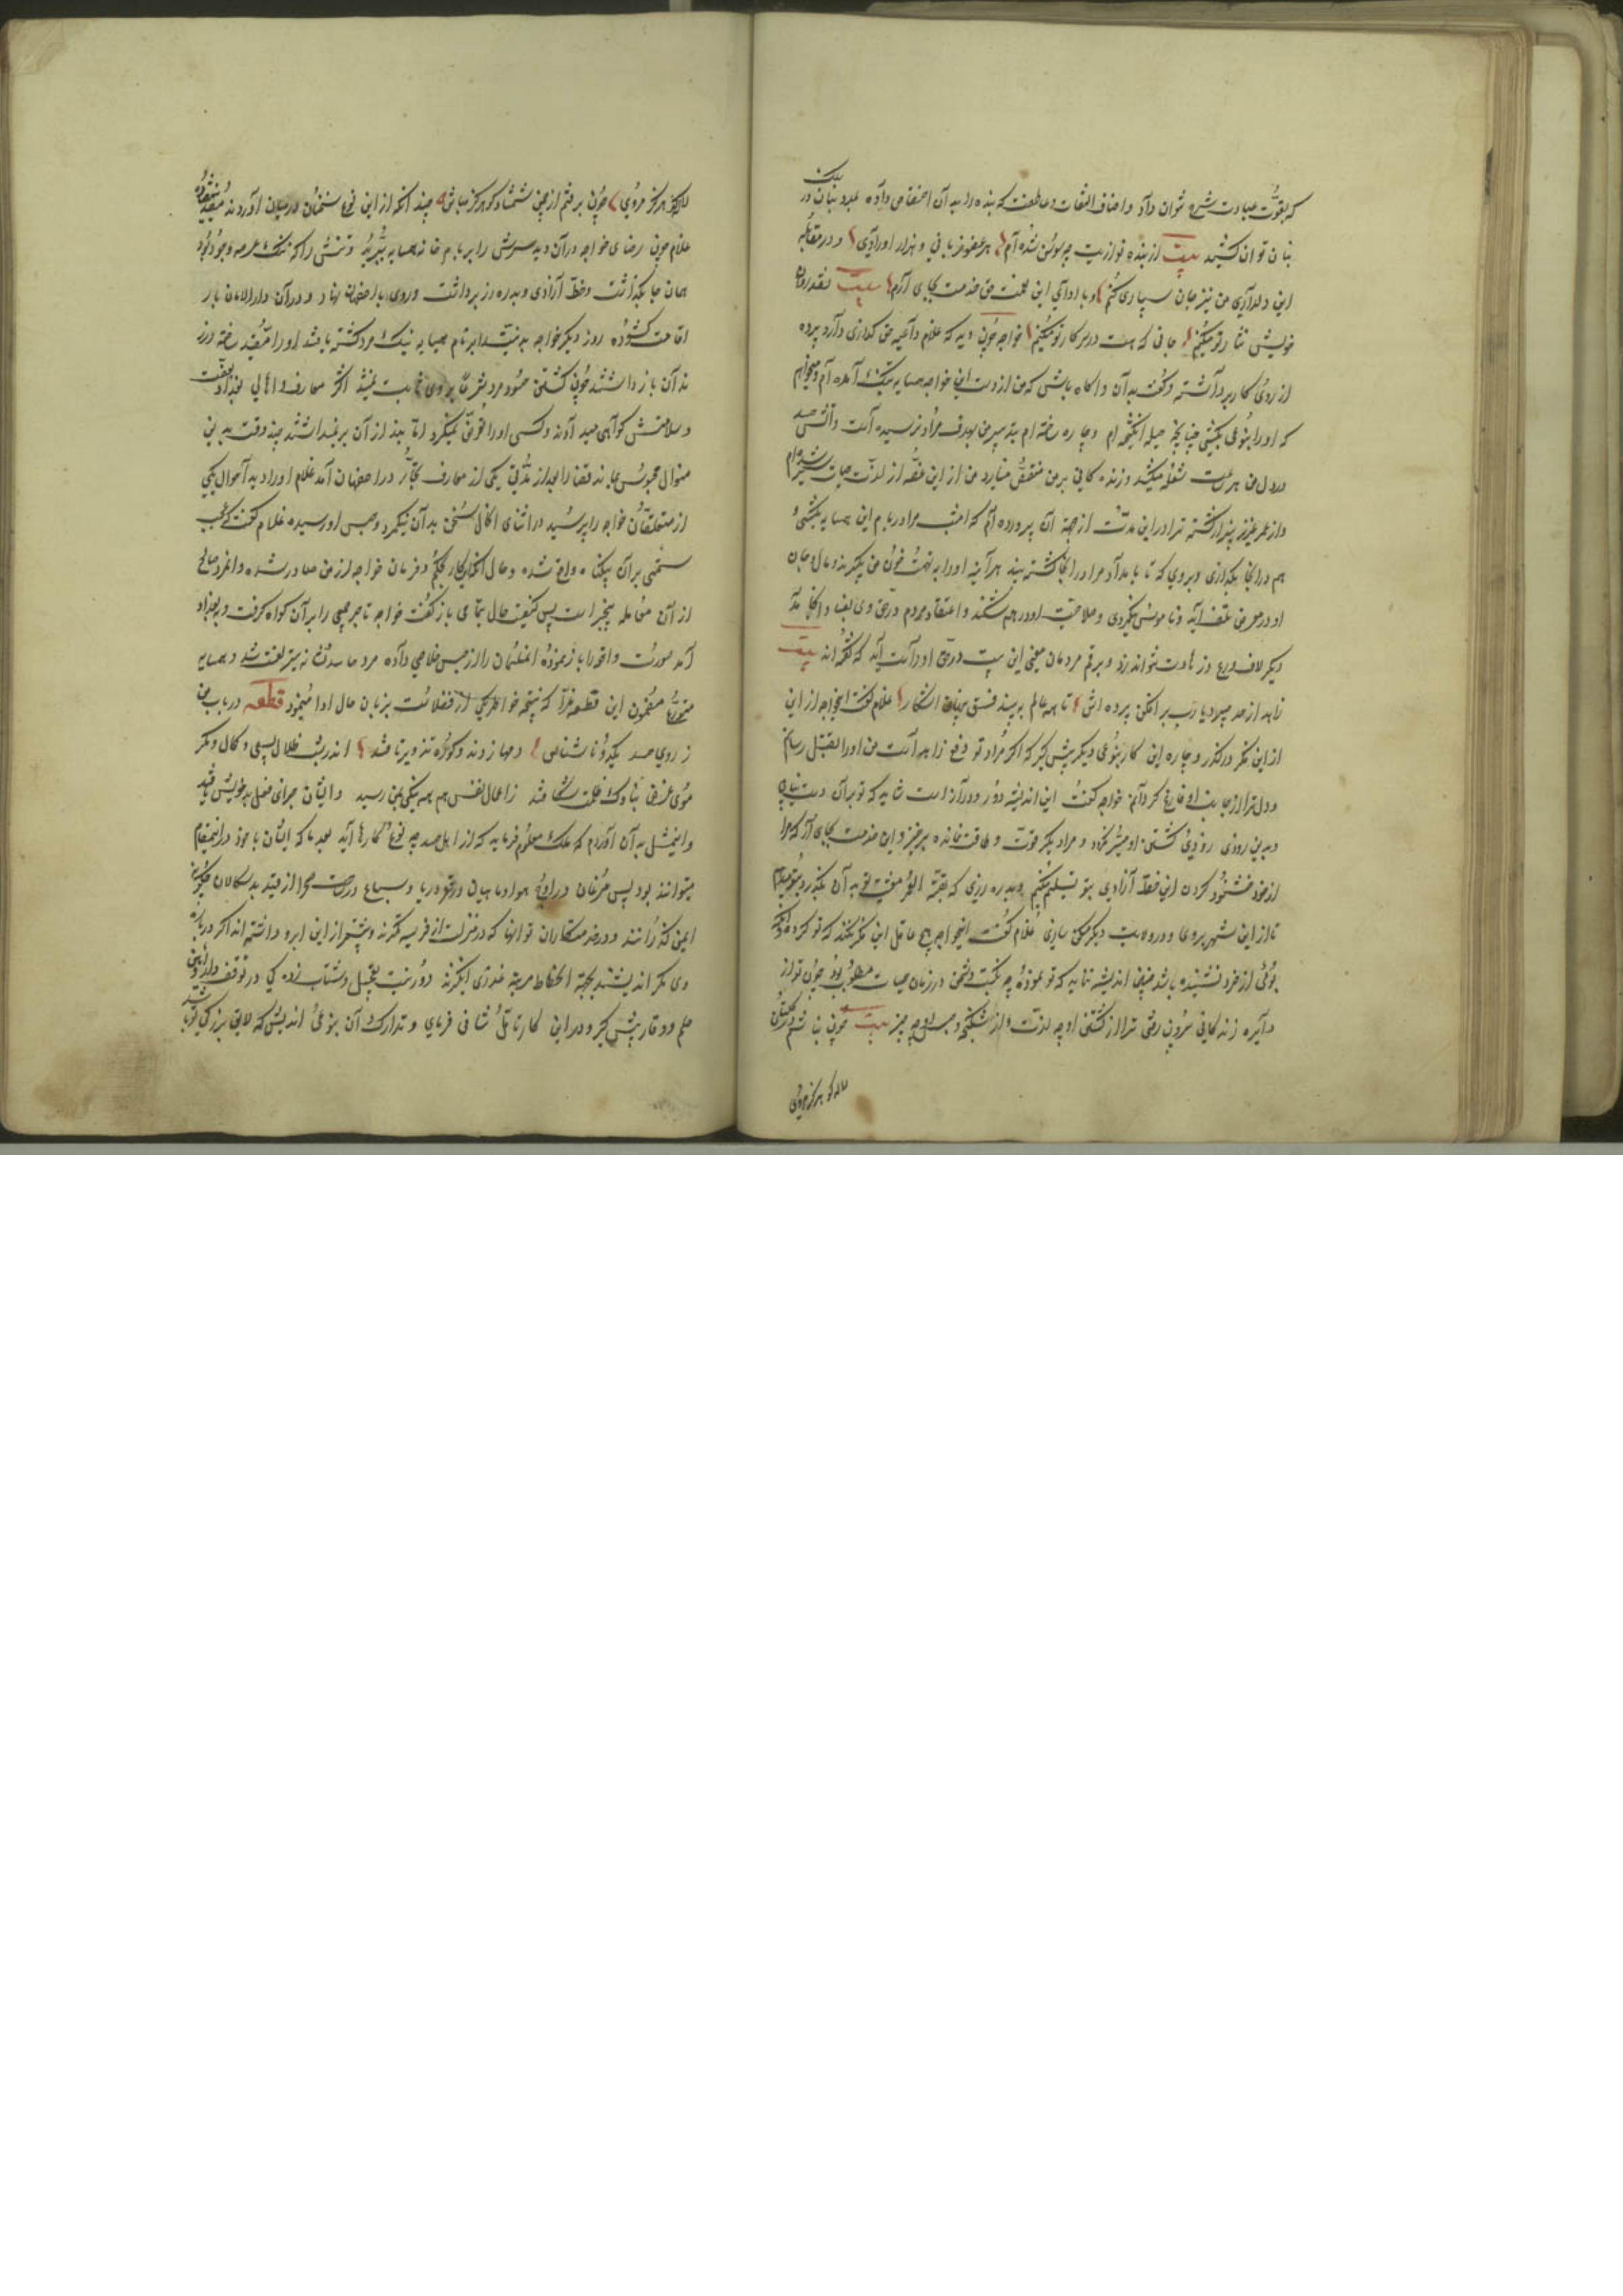 که بقوت عبارت شرح توان داد و اصناف التفات و عاطفت که بنده را به آن اختصاص داده بمدد بنان در بیان
بنان توان کشید بیت از بنده نوازیت چو سوسن شده‌ام هر عضو زبانی و هزار اورادی و در مقابله
این دلداری من نیز جان سپاری کنم و با ادای این نعمت من خدمت بجای آرم بیت نقد روان
خویش نثار تو میکنم جانی که هست در سر کار تو میکنم خواجه چون دید که غلام داعیه حق گذاری دارد پرده
از روی کار برداشته و گفت بدان و آگاه باش که من از دست این خواجه همسایه بتنگ آمده‌ام و میخواهم
که او را بنوعی بکشم چنانچه حیله انگیخته‌ام و چاره ساخته‌ام تیر تدبیر من بهدف مراد نرسیده است و آتش حسد
در دل من هر ساعت شعله میکشد و زندگانی بر من منغص میدارد من از این غصه از لذت حیات سیر شده‌ام
و از عمر عزیز بیزار گشته ترا در این مدت از جهت آن پرورده‌ام که امشب مرا در بام این همسایه بکشی و
هم در انجا بگذاری و بروی که تا بامداد مرا در انجا کشته بیند هر آینه او را به تهمت خون من بگیرند و مال و جان
او در معرض تلف آید و ناموس نیکمردی و صلاحیت او در هم شکند و اعتقاد مردم در حق وی بفساد انجامد
دیگر لاف ورع و زهادت نتواند زد و برقم مردمان معنی این بیت در حق او راست آید که گفته‌اند بیت
زاهد از حد میبرد یا رب بر افکن پرده‌اش تا همه عالم ببیند فسق پنهان اشکار غلام گفت ایخواجه از این
از این فکر درگذر و چاره این کار بنوعی دیگر پیش گیر که اگر مراد تو دفع زاهد است من او را بقتل رسانم
و دل ترا از جانب او فارغ گردانم خواجه گفت این اندیشه دور و دراز است شاید که تو بر آن دست نیابی
و بدین زودی روی کشتن او میسر نگردد و مرا دیگر قوت و طاقت نمانده برخیز و این خدمت بجای آر که مرا
از خود خشنود کردن این خط آزادی بتو تسلیم میکنم و بدره زری که بقیه العمر معیشت تو به آن بگذرد بتو میدهم
تا از این شهر بروی و در ولایت دیگر مسکن سازی غلام گفت ایخواجه هیچ عاقل این فکر نکند که تو کرده و آنکه
بوئی از خرد شنیده باشد چنین اندیشه ننماید که تو نموده چه نکبت دشمن در زمان حیات مطلوب بود چون تو از
دایره زندگانی بیرون رفتی ترا از کشتن او چه لذت و از شکنجه و حبس او چه چیز بیت چون نباشم در گلستان
لاله کو هرگز مروی
لاله کو هرگز مروی چون برفتم از چمن شمشاد کو هرگز مباش چند انکه از این نوع سخنان در میان آوردند مفید نیفتاد
غلام چون رضای خواجه در آن دید سرش را بر بام خانه همسایه ببرید و تنش را که ننگ عرصه وجود بود
همان جا بگذاشت و خط آزادی و بدره زر برداشت و روی باصفهان نهاد و در آن دارالامان بار
اقامت گشوده روز دیگر خواجه بدنیت را بر بام همسایه نیک مرد کشته یافتند او را مقید ساخته در ز
ندان باز داشتند چون کشتن حسود مرد بشرعا بر وی ثابت نمیشد اکثر معارف و اهالی بغداد بعفت
و سلامتش گواهی میدادند و کسی او را تعرض نمیکرد اما بند از آن بر نمیداشتند چند وقت به این
منوال محبوس ماند قضا را بعد از مدتی یکی از معارف تجار در اصفهان آمد غلام او را دید احوال یکی
از متعلقان خواجه را پرسید در اثنای آنحال سخن بدان نیکمرد و حبس او رسید غلام گفت عجب
ستمی بر آن بیگناه واقع شده و حال انکه این کار بحکم و فرمان خواجه از من صادر شده و انمرد صالح
از آن معامله بیخبر است پس کیفیت حال بتمامی باز گفت خواجه تاجر جمعی را بر آن گواه گرفت و ببغداد
آمد صورت واقعه را باز نموده انمسلمان را از حبس خلاصی داده مرد حاسد
مضمون این قطعه غرا که نتیجه خواطر یکی از فضلاست بزبان حال ادا مینمود قطعه در باب من
ز روی حسد یکدو ناشناس دمها زدند و کوره تزویر تافتند اندر شب ظلال پسی و کمال و مکر
موی غرض بناوک غفلت شکافتند ز اعمال نفس هم همه نیکی بمن رسید و ایشان جزای فعل بد خویش یافتند
و اینمثل به آن آوردم که ملک معلوم فرماید که از اهل حسد چه نوع کارها آید بعد ما که ایشان با خود در اینمقام
میتوانند بود پس مرغان در اوج هوا و ماهیان در قعر دریا و سباع در دشت صحرا از قید بدسگالان چگونه
ایمن گذرانند و در خدمتکاران تو اینها که در منزلت از فریسه کمترند و پیشتر از این ابرو داشته‌اند اگر در باره
وی مکر اندیشند بجهت انحطاط مرتبه غدری انگیزند دور نیست تعجیل و شتاب زدگی در توقف دار و این
حلم و وقار پیش گیر و در این کار تامل شافی فرمای و تدارک آن بنوعی اندیش که لایق بزرگی تو باشد